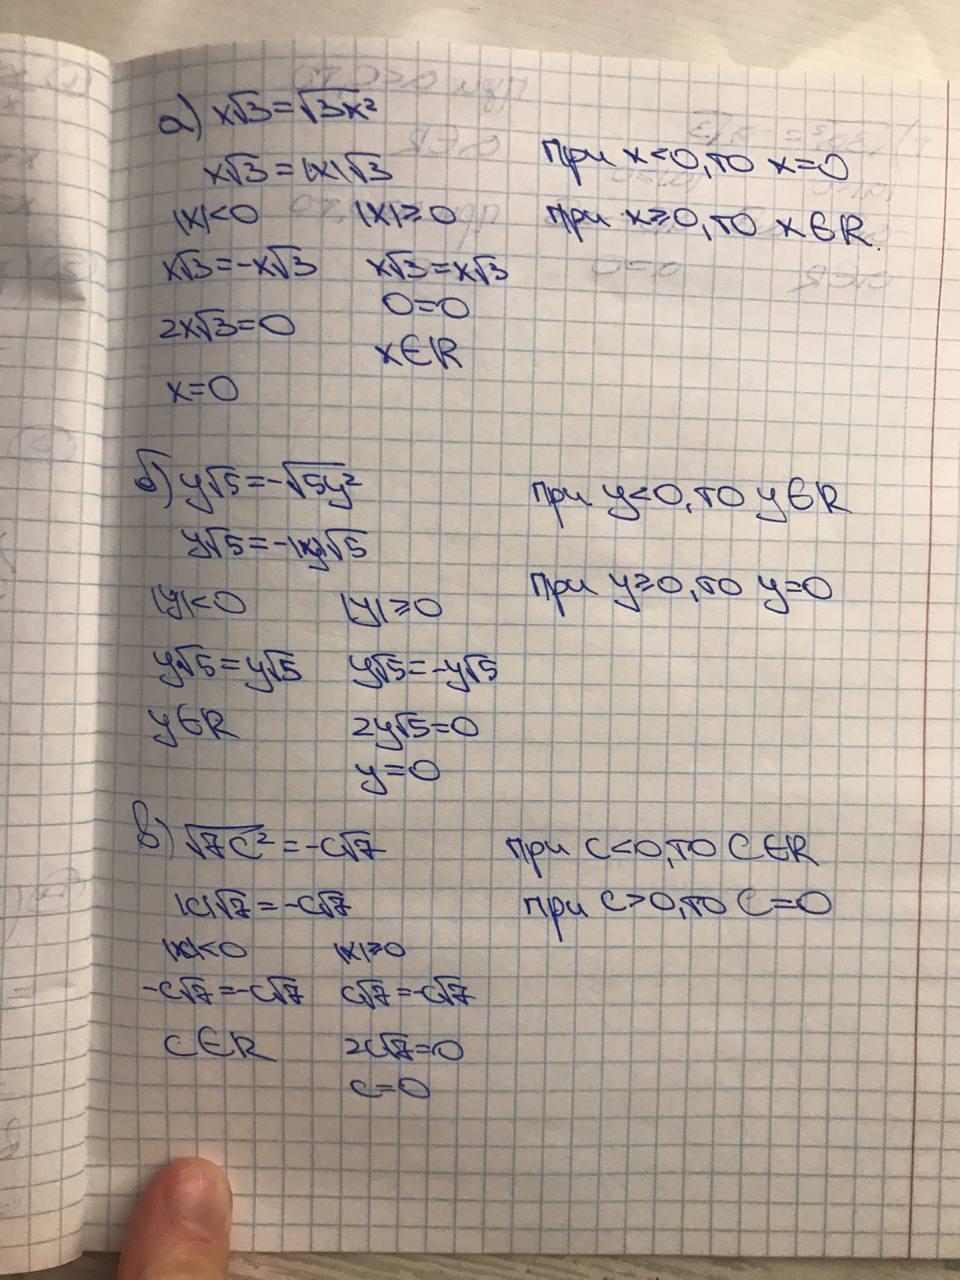 а) x√3=√3x²
x√3=|x|√3
|x|<0 |x|≥0
x√3=-x√3 x√3=x√3
0=0
2x√3=0
x∈R
x=0
при x<0, то x=0
при x≥0, то x∈R.
б) y√5=-√5y²
y√5=-|y|√5
|y|<0 |y|≥0
y√5=y√5 y√5=-y√5
y∈R 2y√5=0
y=0
при y<0, то y∈R
при y≥0, то y=0
в) √7c²=-c√7
|c|√7=-c√7
|x|<0 |x|≥0
-c√7=-c√7 c√7=-c√7
c∈R 2c√7=0
c=0
при c<0, то c∈R
при c>0, то c=0